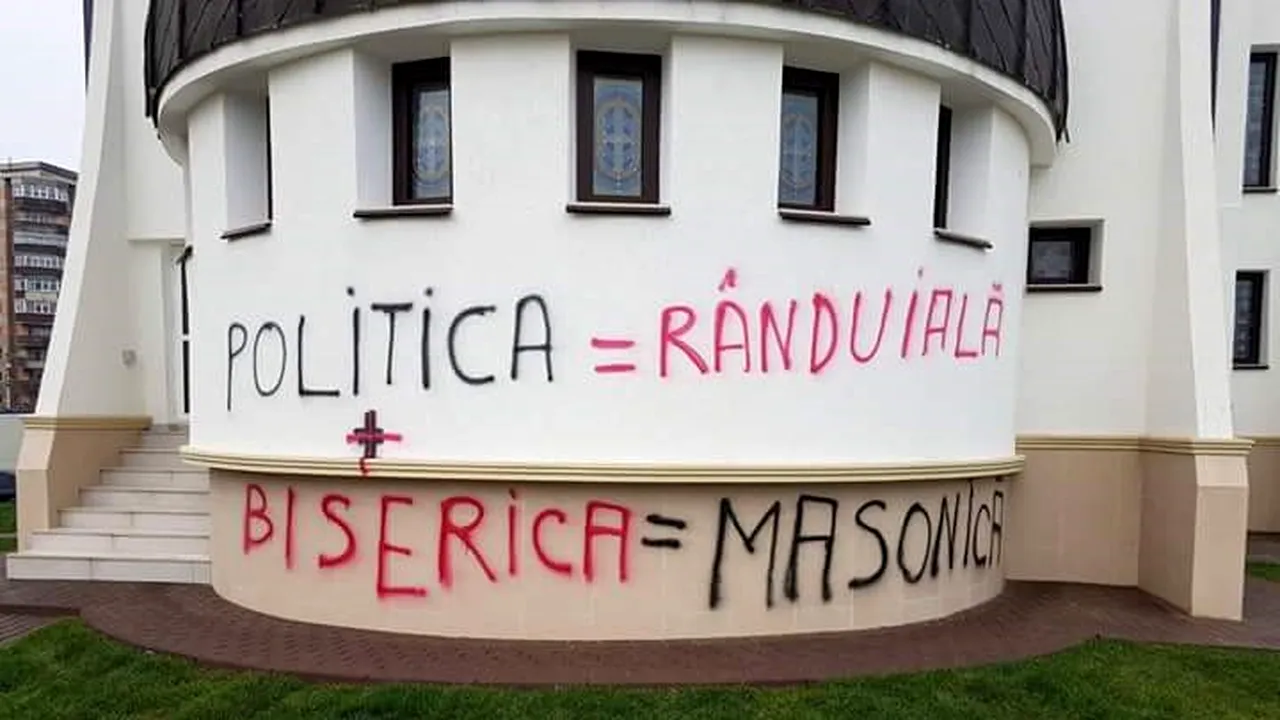 POLITICA = RÂNDUIALĂ
+
BISERICA = MASONICĂ